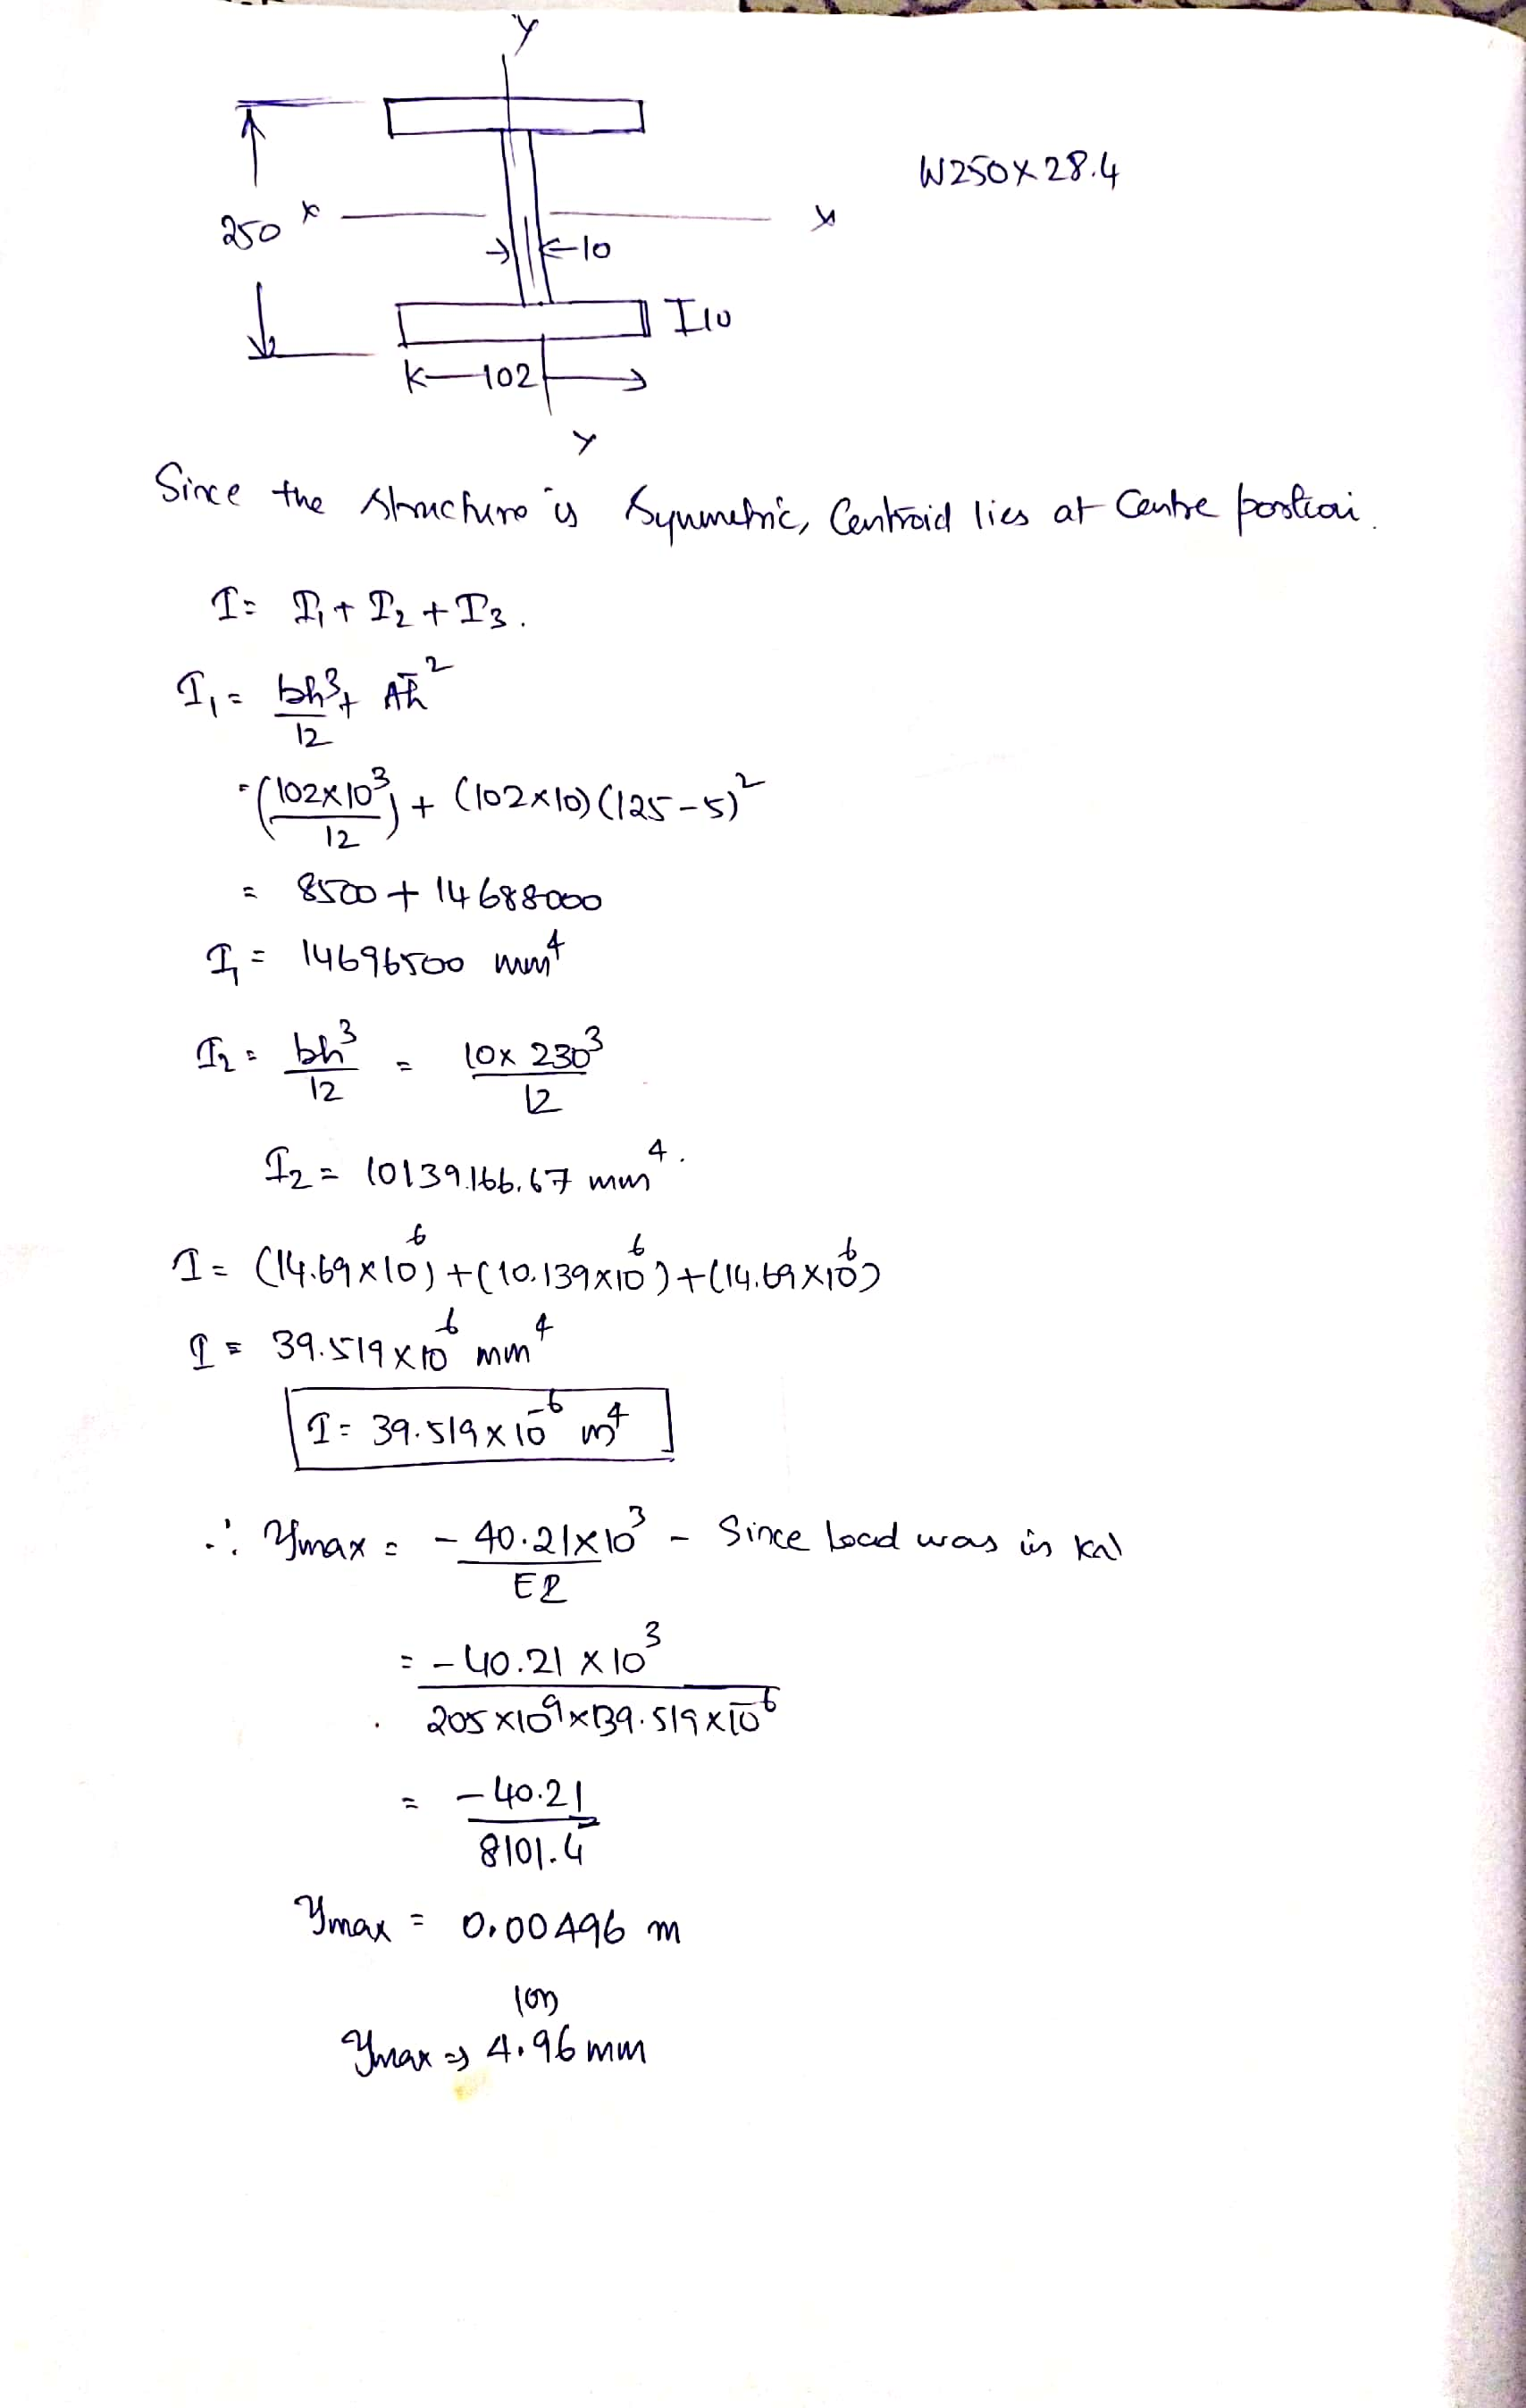 Y
W250x28.4
250
x
x
10
10
102
Y
Since the structure is symmetric, Centroid lies at Centre position.
I = I1 + I2 + I3.
I1 = bh³/12 + Ah̄²
= (102x10³/12) + (102x10)(125-5)²
= 8500 + 14688000
I1 = 14696500 mm⁴
I2 = bh³/12 = 10x230³/12
I2 = 10139166.67 mm⁴.
I = (14.69x10⁶) + (10.139x10⁶) + (14.69x10⁶)
I = 39.519x10⁶ mm⁴
I = 39.519x10⁻⁶ m⁴
∴ ymax = -40.21x10³/EI - Since load was in kN
= -40.21x10³/205x10⁹x39.519x10⁻⁶
= -40.21/8101.4
ymax = 0.00496 m
(or)
ymax ⇒ 4.96 mm